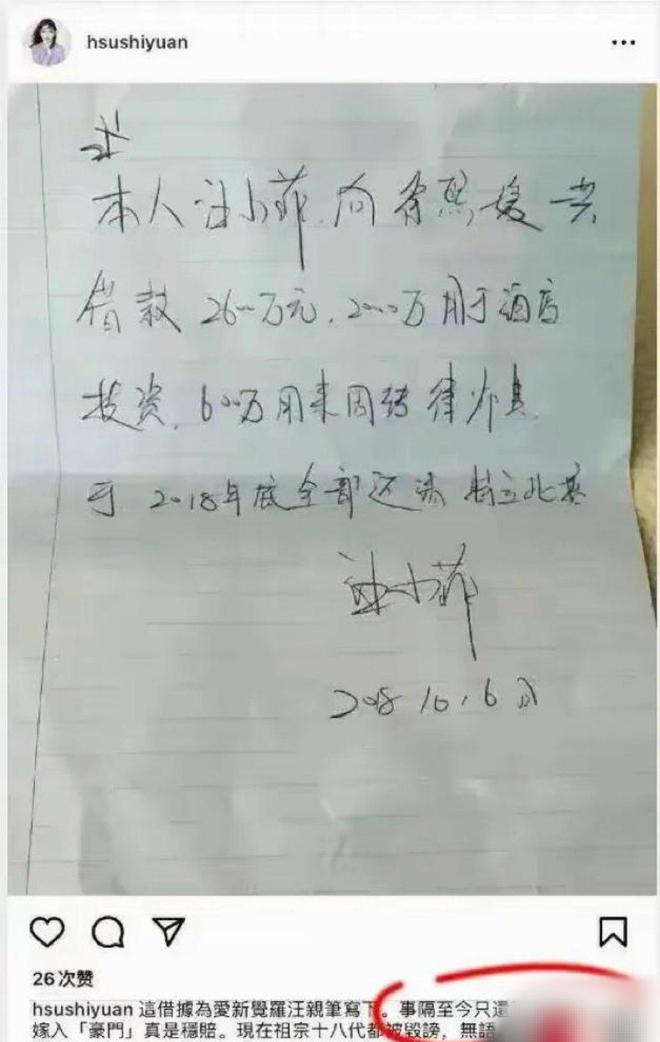 hsushiyuan
本人汪小菲向徐熙媛共
借款2600万元,2000万用于酒店
投资,600万用来周转律师费
于2018年底全部还清 特立此据
汪小菲
2018 10.6日
26次赞
hsushiyuan 這借據為愛新覺羅汪親筆寫下。事隔至今只還
嫁入「豪門」真是穩賠。現在祖宗十八代都被毀謗,無語